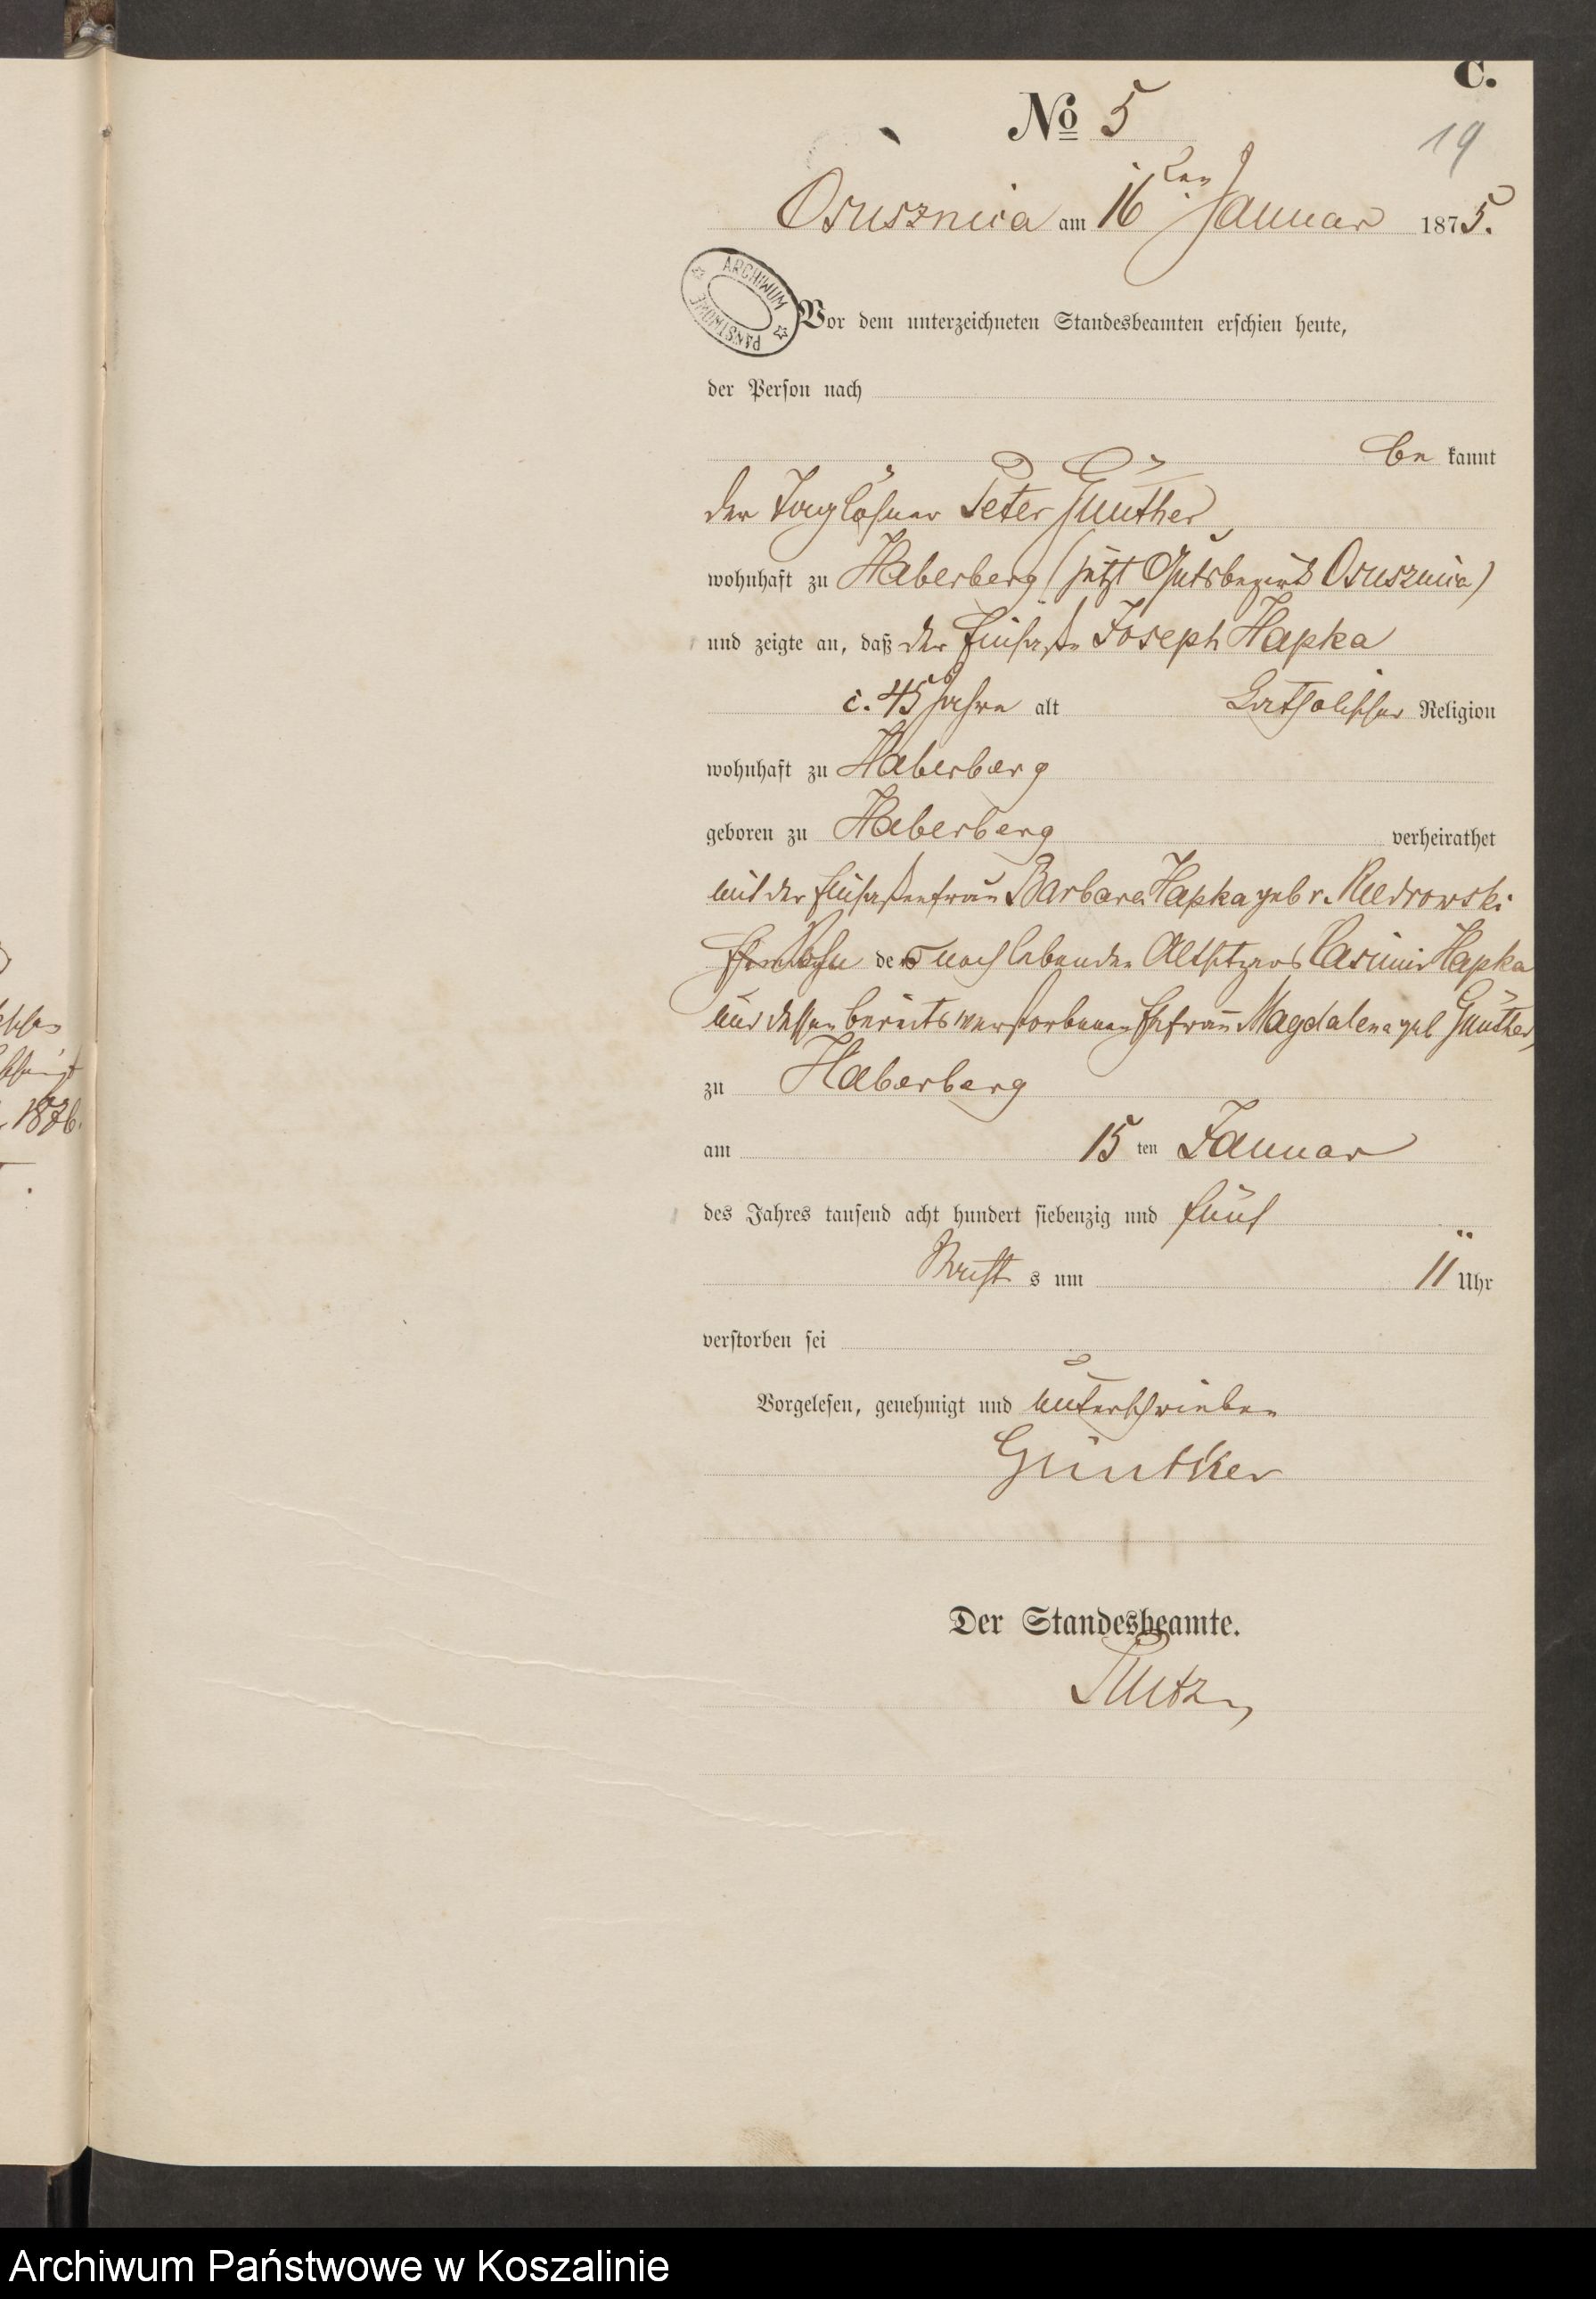 C.
No 5
19
Osusznica am 16ten Januar 1875.
ARCHIWUM PAŃSTWOWE
Vor dem unterzeichneten Standesbeamten erschien heute,
der Person nach
be kannt
der Taglöhner Peter Günther
wohnhaft zu Haberberg (jetzt Gutsbezirk Osusznica)
und zeigte an, daß der Einsaße Joseph Hapka
c. 45 Jahre alt katholischer Religion
wohnhaft zu Haberberg
geboren zu Haberberg verheirathet
mit der Einsaßenfrau Barbara Hapka geb v.
Sohn des noch lebenden Altsitzers Casimir Hapka
und dessen bereits verstorbenen Ehefrau Magdalena geb Günther,
zu Haberberg
am 15 ten Januar
des Jahres tausend acht hundert siebenzig und fünf
s um 11 Uhr
verstorben sei
Vorgelesen, genehmigt und unterschrieben
Günther
Der Standesbeamte.
1876.
Archiwum Państwowe w Koszalinie